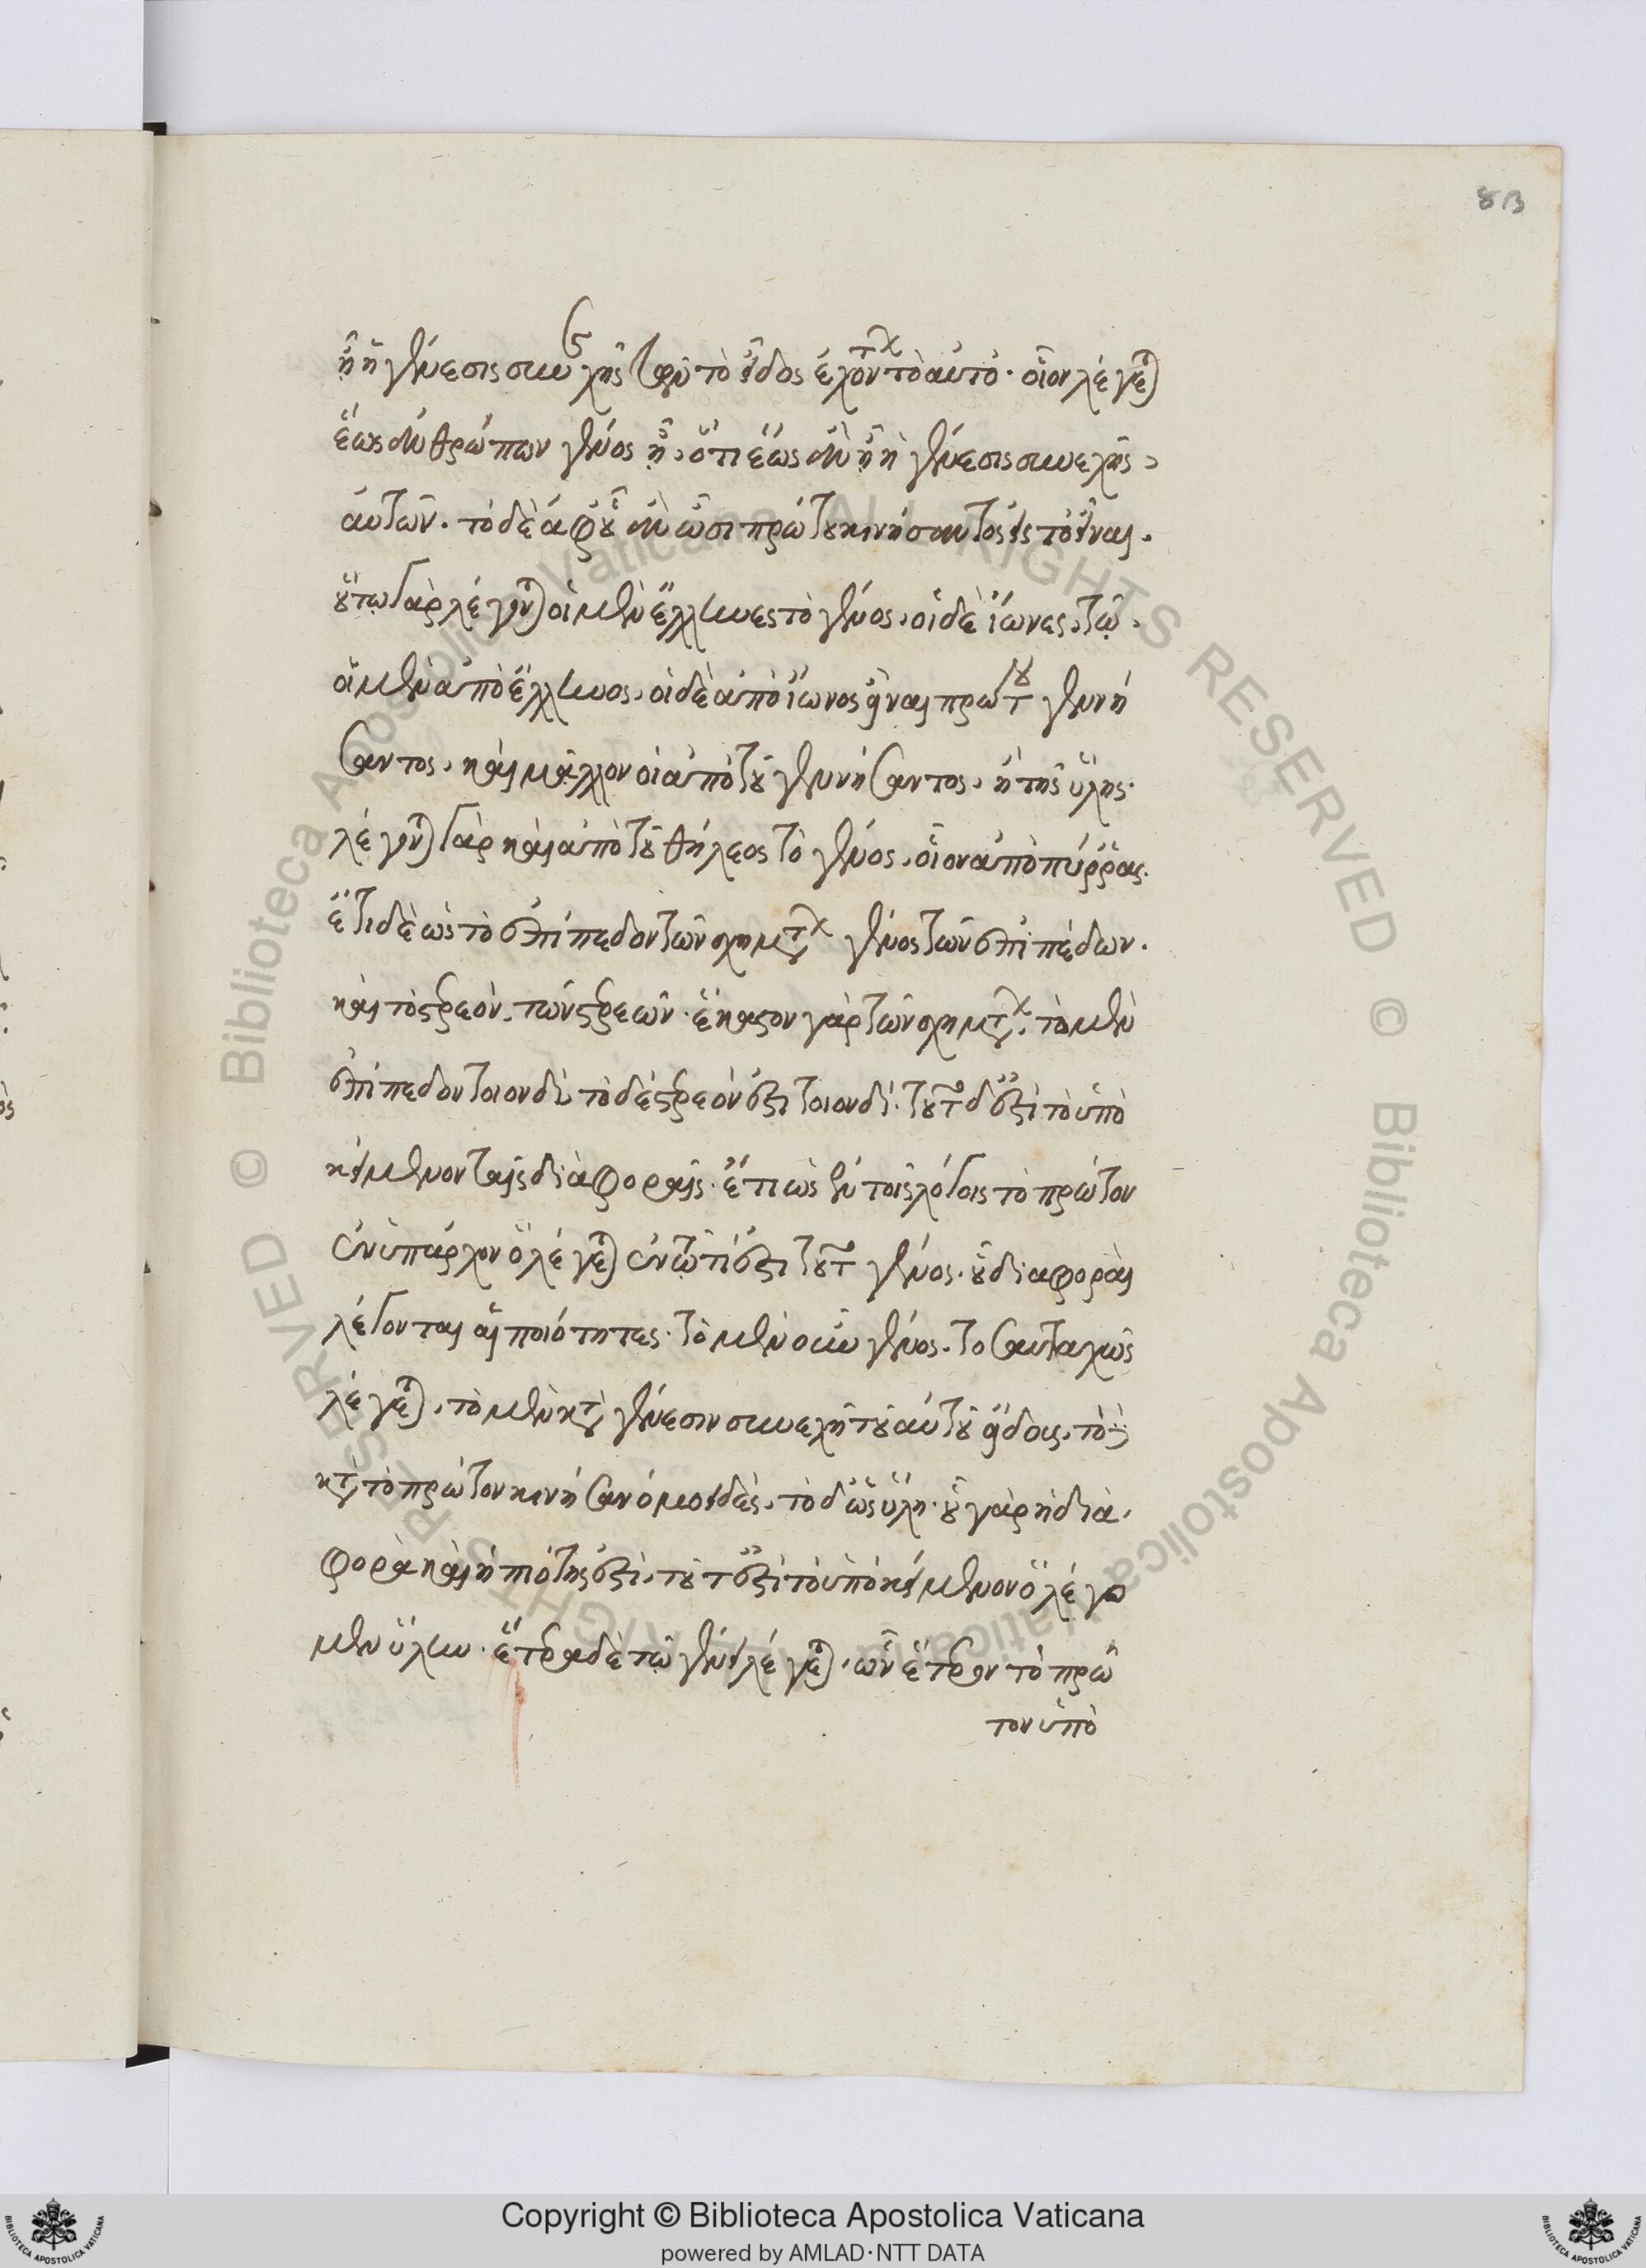 83
ᾖ ἡ γένεσις συνεχὴς τῶν τὸ εἶδος ἐχόντων τὸ αὐτό· οἷον λέγεται
ἕως ἀνθρώπων γένος ᾖ, ὅτι ἕως ἂν ᾖ ἡ γένεσις συνεχὴς,
αὐτῶν. τὸ δὲ ἀφ' οὗ ἂν ὦσι πρώτου κινήσαντος εἰς τὸ εἶναι.
οὕτω γὰρ λέγονται οἱ μὲν ἕλληνες τὸ γένος, οἱ δὲ ἴωνες, τῷ,
οἱ μὲν ἀπὸ ἕλληνος, οἱ δὲ ἀπὸ ἴωνος εἶναι πρώτου γεννή
σαντος, καὶ μᾶλλον οἱ ἀπὸ τοῦ γεννήσαντος, ἢ τῆς ὕλης.
λέγονται γὰρ καὶ ἀπὸ τοῦ θήλεος τὸ γένος, οἷον ἀπὸ πύρρας.
ἔτι δὲ ὡς τὸ ἐπίπεδον τῶν σχημάτων γένος τῶν ἐπιπέδων.
καὶ τὸ στερεὸν, τῶν στερεῶν· ἕκαστον γὰρ τῶν σχημάτων, τὸ μὲν
ἐπίπεδον τοιονδὶ, τὸ δὲ στερεόν ἐστι τοιονδί· τοῦτο δ' ἐστὶ τὸ ὑπο
κείμενον ταῖς διαφοραῖς. ἔτι ὡς ἐν τοῖς λόγοις τὸ πρῶτον
ἐνυπάρχον ὃ λέγεται ἐν τῷ τί ἐστι τοῦτο γένος. οὗ διαφοραὶ
λέγονται αἱ ποιότητες· τὸ μὲν οὖν γένος, τοσαυταχῶς
λέγεται, τὸ μὲν κατὰ γένεσιν συνεχῆ τοῦ αὐτοῦ εἴδους, τὸ δὲ
κατὰ τὸ πρῶτον κινῆσαν ὁμοειδές, τὸ δ' ὡς ὕλη· οὗ γὰρ ἡ δια,
φορὰ καὶ ἡ ποιότης ἐστὶ, τοῦτ' ἐστὶ τὸ ὑποκείμενον ὃ λέγο
μεν ὕλην. ἕτερα δὲ τῷ γένει λέγεται, ὧν ἕτερον τὸ πρῶ
τον ὑπο
Copyright © Biblioteca Apostolica Vaticana
powered by AMLAD·NTT DATA